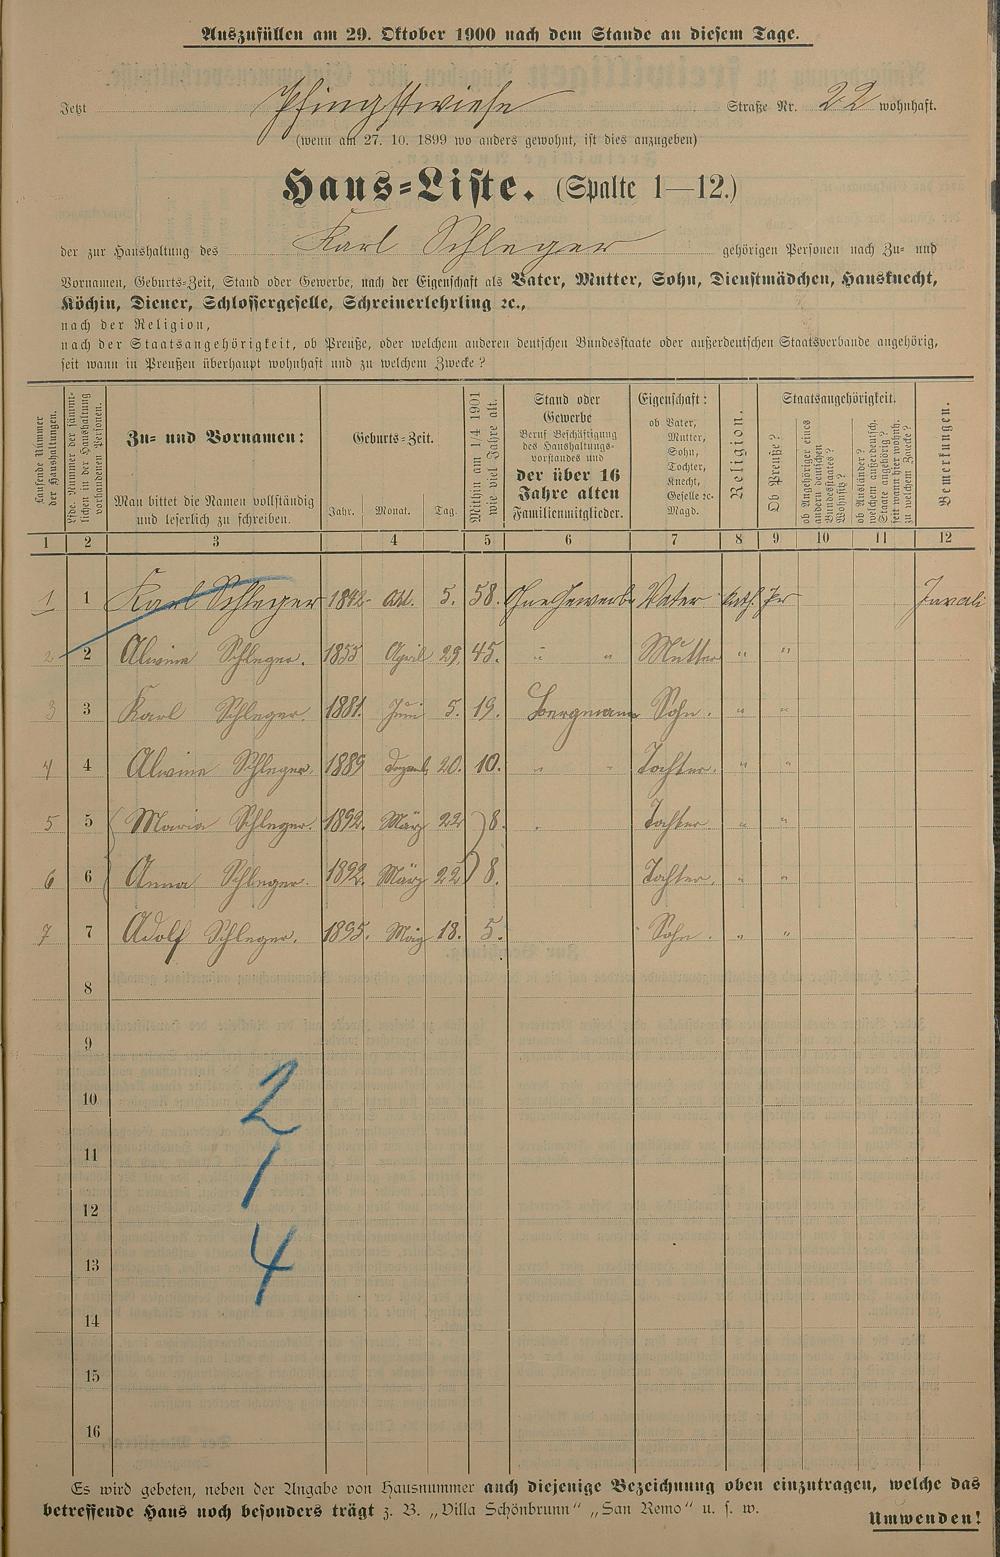 Auszufüllen am 29. Oktober 1900 nach dem Stande an diesem Tage.
Jetzt Pfingstwiese Straße Nr. 22 wohnhaft.
(wenn am 27. 10. 1899 wo anders gewohnt, ist dies anzugeben)
Haus=Liste. (Spalte 1—12.)
der zur Haushaltung des Karl Schleger gehörigen Personen nach Zu- und
Vornamen, Geburts-Zeit, Stand oder Gewerbe, nach der Eigenschaft als Vater, Mutter, Sohn, Dienstmädchen, Hausknecht,
Köchin, Diener, Schlossergeselle, Schreinerlehrling ꝛc.,
nach der Religion,
nach der Staatsangehörigkeit, ob Preuße, oder welchem anderen deutschen Bundesstaate oder außerdeutschen Staatsverbande angehörig,
seit wann in Preußen überhaupt wohnhaft und zu welchem Zwecke?
Laufende Nummer der Haushaltungen.
Lfde. Nummer der sämmtlichen in der Haushaltung vorhandenen Personen.
Zu- und Vornamen:
Man bittet die Namen vollständig
und leserlich zu schreiben.
Geburts-Zeit.
Jahr. Monat. Tag.
Mithin am 1/4 1901 wie viel Jahre alt.
Stand oder
Gewerbe
Beruf Beschäftigung
des Haushaltungs-
vorstandes und
der über 16
Jahre alten
Familienmitglieder.
Eigenschaft:
ob Vater,
Mutter,
Sohn,
Tochter,
Knecht,
Geselle ꝛc.
Magd.
Religion.
Staatsangehörigkeit.
Ob Preuße?
ob Angehöriger eines andern deutschen Bundesstaates? Wohnsitz?
ob Ausländer? welchem außerdeutsch. Staate angehörig? seit wann hier wohnh. zu welchem Zwecke?
Bemerkungen.
1 2 3 4 5 6 7 8 9 10 11 12
1 1 Karl Schleger 1842 Okt. 5. 58. Ohne Gewerbe Vater kath. Pr Invali
2 2 Alwine Schleger. 1855 April 29. 45. " " Mutter " "
3 3 Karl Schleger. 1881. Juni 5. 19. Bergmann Sohn. " "
4 4 Alwine Schleger. 1889 Dezemb. 20. 10. " " Tochter. " "
5 5 Maria Schleger. 1892. März 22 8. " Tochter. " "
6 6 Anna Schleger. 1892. März 22 8. Tochter. " "
7 7 Adolf Schleger. 1895. 18. 5. Sohn. " "
8
9
10 2
11 1
12
13 4
14
15
16
Es wird gebeten, neben der Angabe von Hausnummer auch diejenige Bezeichnung oben einzutragen, welche das
betreffende Haus noch besonders trägt z. B. „Villa Schönbrunn" „San Remo" u. s. w.
Umwenden!